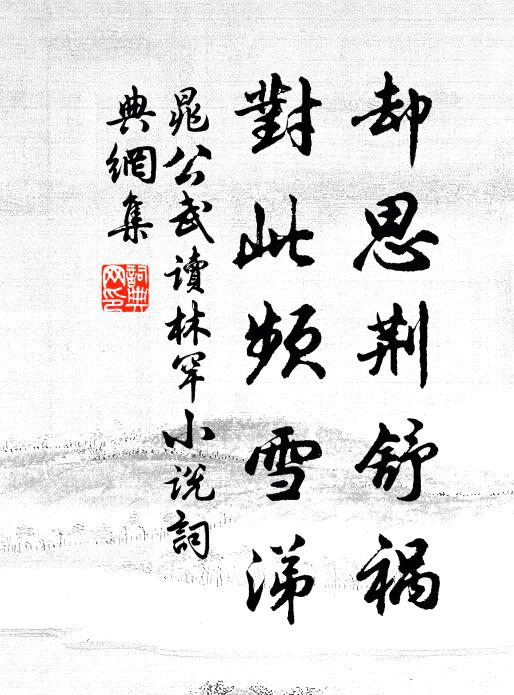 却思荆舒禍
對此頻雪涕
晁公武讀林罕小説詞
典網集
詞典網印